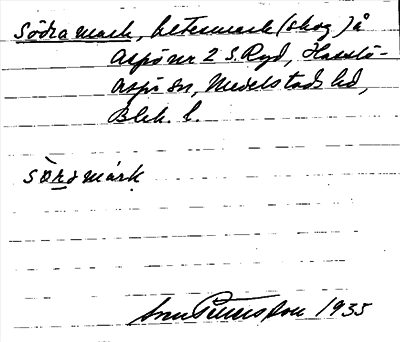 Södra mark, betesmark (skog) å
Aspö nr 2 S. Ryd, Hasslö-
Aspö sn, Medelstads hd,
Blek. l.
sö̀rdmárk
Sven Petersson 1935